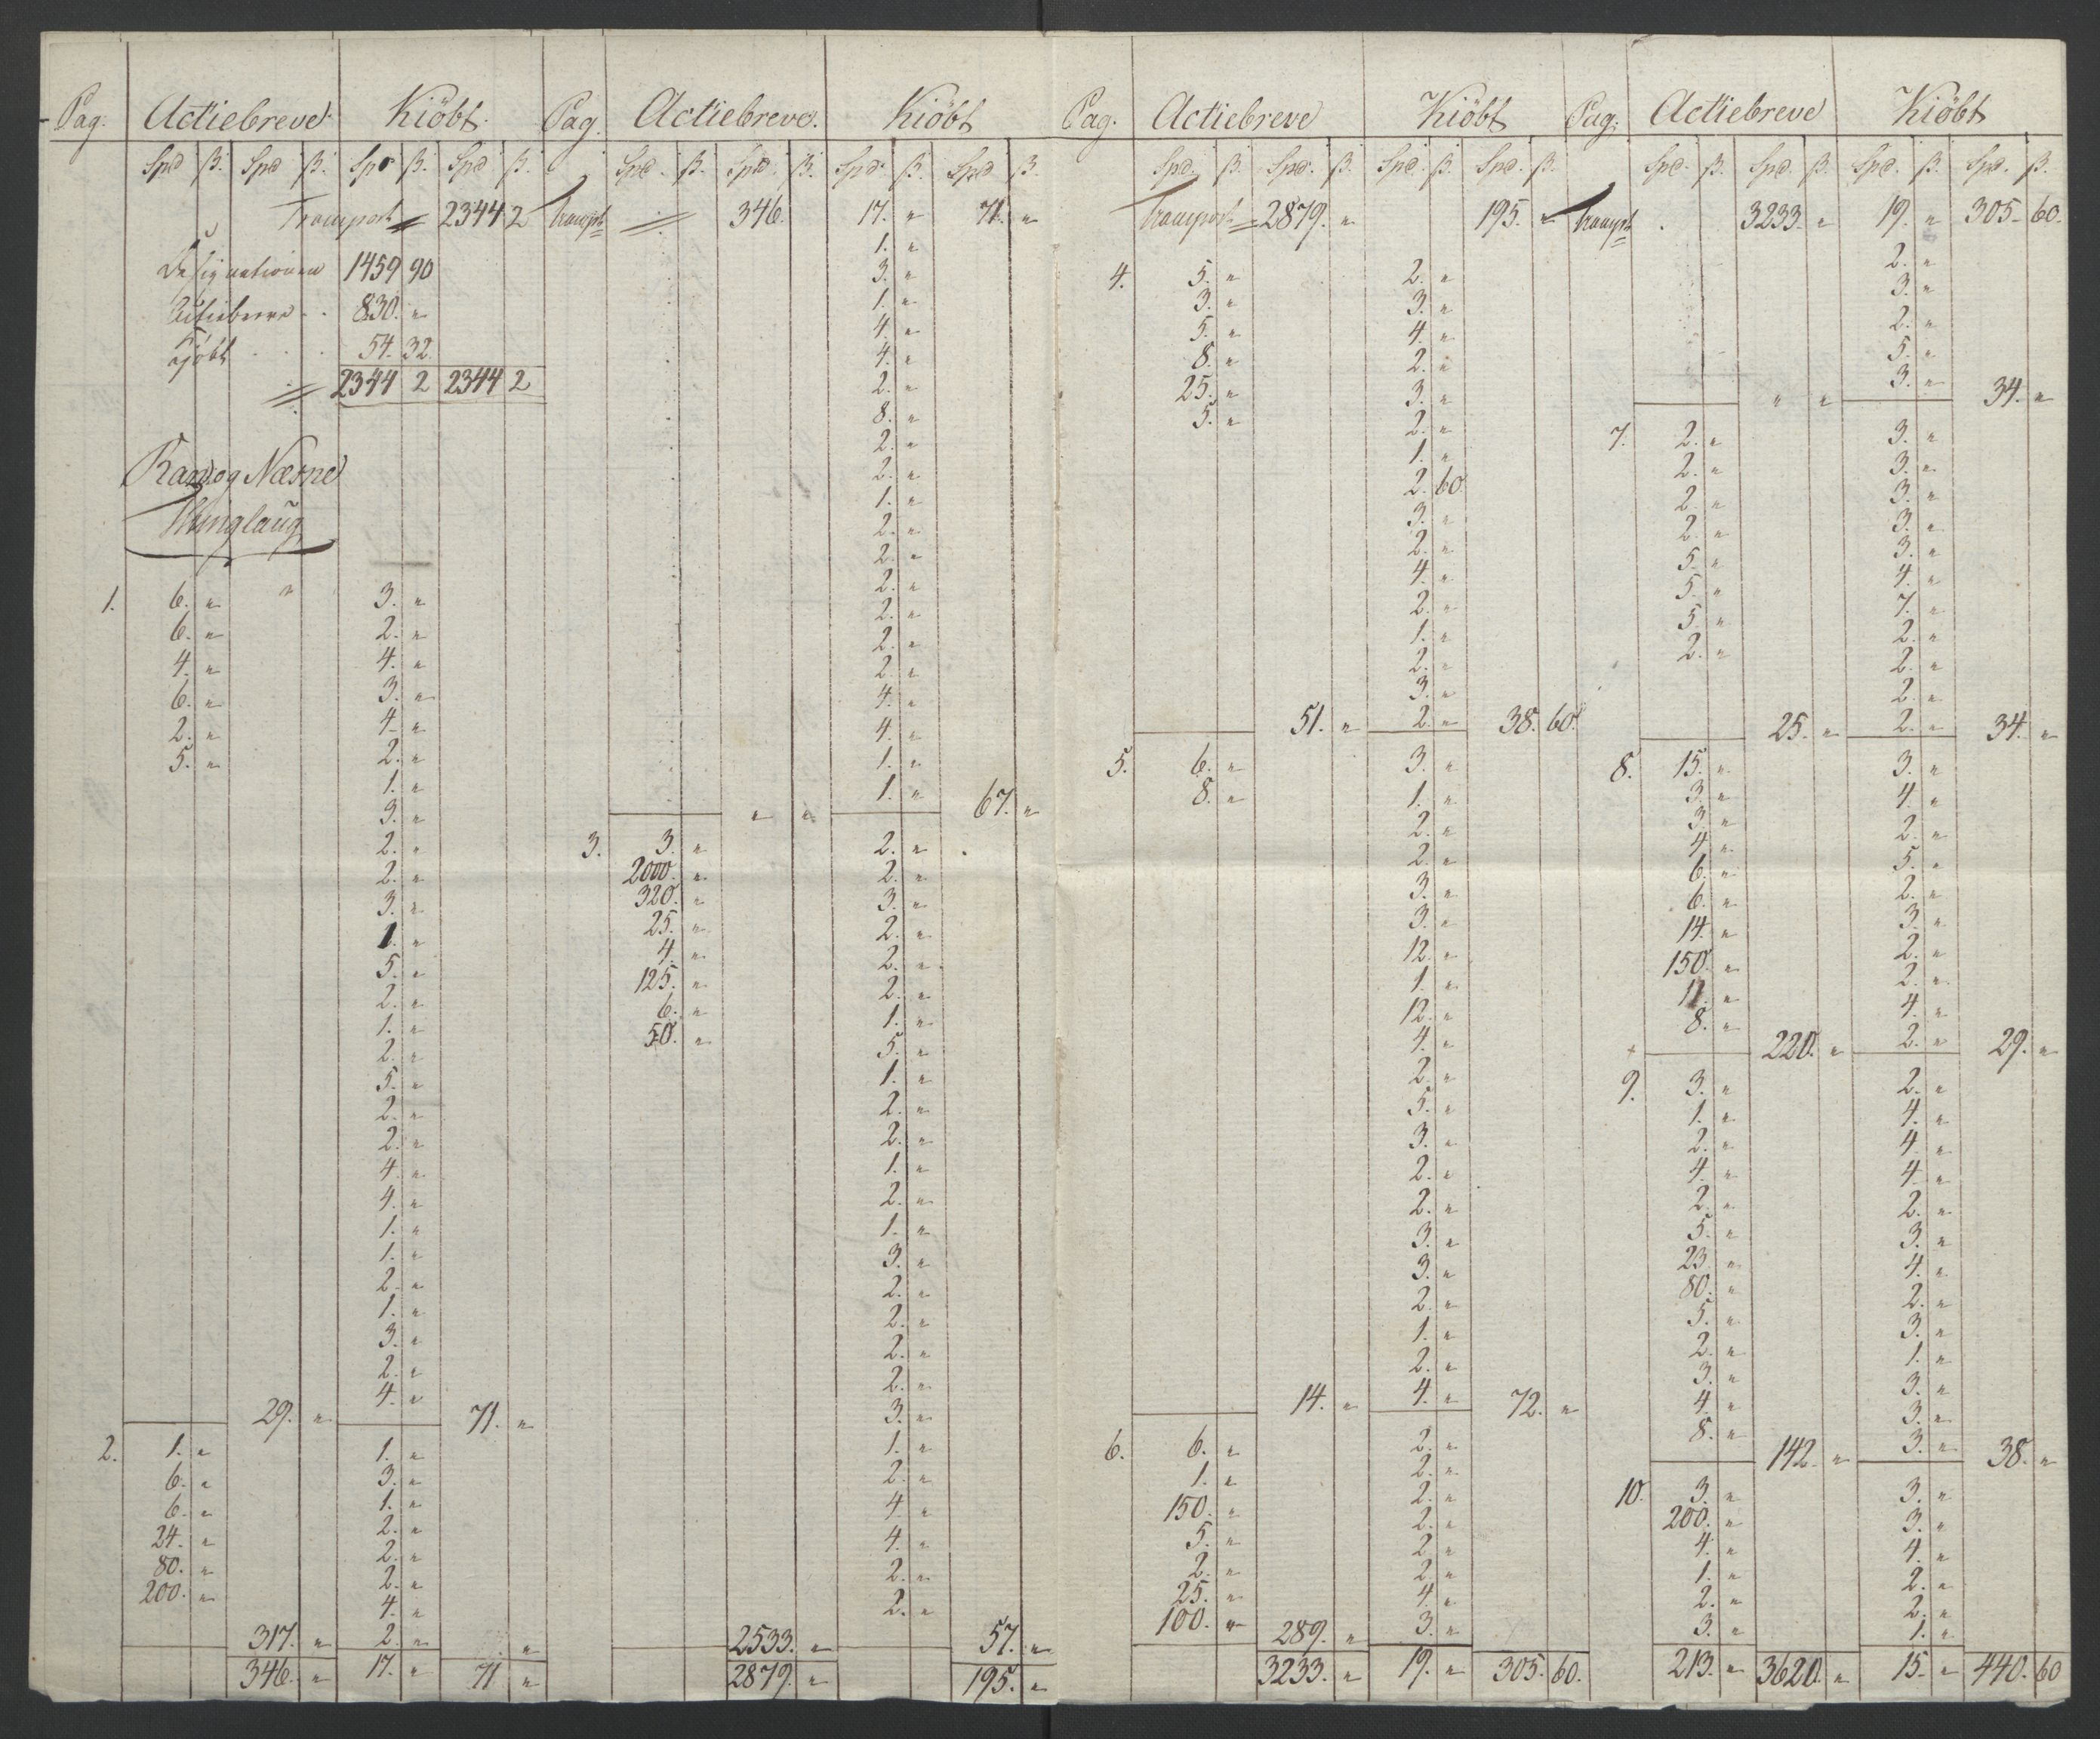 Pag. Actiebreve Kiöbt.
Spd ß. Spd ß. Spd ß. Spd ß.
Transport 2344 2
Designationen 1459 90
Actiebreve . . 830. "
Kjöbt . . . 54. 32
2344 2 2344 2
Ran og Næsne
Thinglaug
1. 6. " 3. "
6. " 2. "
4. " 4. "
6. " 3. "
2. " 4. "
5. " 2. "
1. "
3. "
2. "
2. "
3. "
1. "
5. "
2. "
1. "
2. "
5. "
2. "
2. "
4. "
4. "
1. "
1. "
2. "
1. "
3. "
2. "
4. "
29. " 71. "
2. 1. " 1. "
6. " 3. "
6. " 1. "
24. " 2. "
80. " 2. "
200. " 2. "
4. "
317. " 2. " "
346. " 17. " 71 "
Pag. Actiebreve. Kiöbt
Spd. ß. Spd. ß. Spd. ß. Spd ß.
Transpt 346. 17. " 71. "
1. "
3. "
1. "
4. "
4. "
2. "
8. "
2. "
2. "
1. "
2. "
2. "
2. "
2. "
2. "
2. "
4. "
4. "
1. "
1. "
" " 67. "
3. 3. " 2. "
2000. " 2. "
320. " 3. "
25. " 2. "
4. " 2. "
125. " 2. "
6. " 1. "
50. " 5. "
1. "
2. "
2. "
1. "
2. "
1. "
3. "
2. "
2. "
2. "
2. "
3. "
1. "
2. "
4. "
4. "
2. "
2. "
2533. " 57. "
2879. " 195. "
Pag. Actiebreve Kiöbt
Spd. ß. Spd. ß. Spd. ß. Spd. ß.
Transport 2879. " 195. "
4. 5. " 2. "
3. " 3. "
5. " 4. "
8. " 2. "
25. " 3. "
5. " 2. "
1. "
2. 60.
3. "
2. "
4. "
2. "
1. "
2. "
3. "
51. " 2. " 38. 60.
5. 6. " 3. "
8. " 1. "
2. "
2. "
3. "
3. "
12. "
1. "
12. "
4. "
2. "
5. "
3. "
2. "
2. "
3. "
3. "
2. "
1. "
2. "
14. " 4. " 72. "
6. 6. " 2. "
1. " 2. "
150. " 2. "
5. " 2. "
2. " 2. "
25. " 2. "
4. "
100. " 289. " 3. "
3233. " 19. " 305. 60.
Pag. Actiebreve Kiöbt
Spd. ß. Spd. ß. Spd. ß. Spd. ß.
Transpt . 3233. " 19. " 305. 60.
2. "
3. "
2. "
5. "
3. "
" " 34. "
7. 2. " 3. "
2. " 3. "
2. " 3. "
2. " 3. "
5. " 3. "
5. " 4. "
5. " 7. "
2. " 2. "
2. "
2. "
25. " 2. " 34. "
8. 15. " 3. "
3. " 4. "
3. " 2. "
4. " 5. "
6. " 2. "
6. " 3. "
14. " 2. "
150. " 2. "
11. " 4. "
8. " 220. " 2. " 29. "
9. 3. " 2. "
1. " 4. "
2. " 4. "
4. " 4. "
2. " 2. "
5. " 3. "
23. " 4. "
80. " 2. "
5. " 3. "
2. " 1. "
3. " 3. "
4. " 3. "
8. " 142. " 3. " 38. "
10. 3. " 3. "
200. " 3. "
4. " 4. "
1. " 2. "
2. " 2. "
3. " 1. "
213. " 3620. " 15. " 440. 60